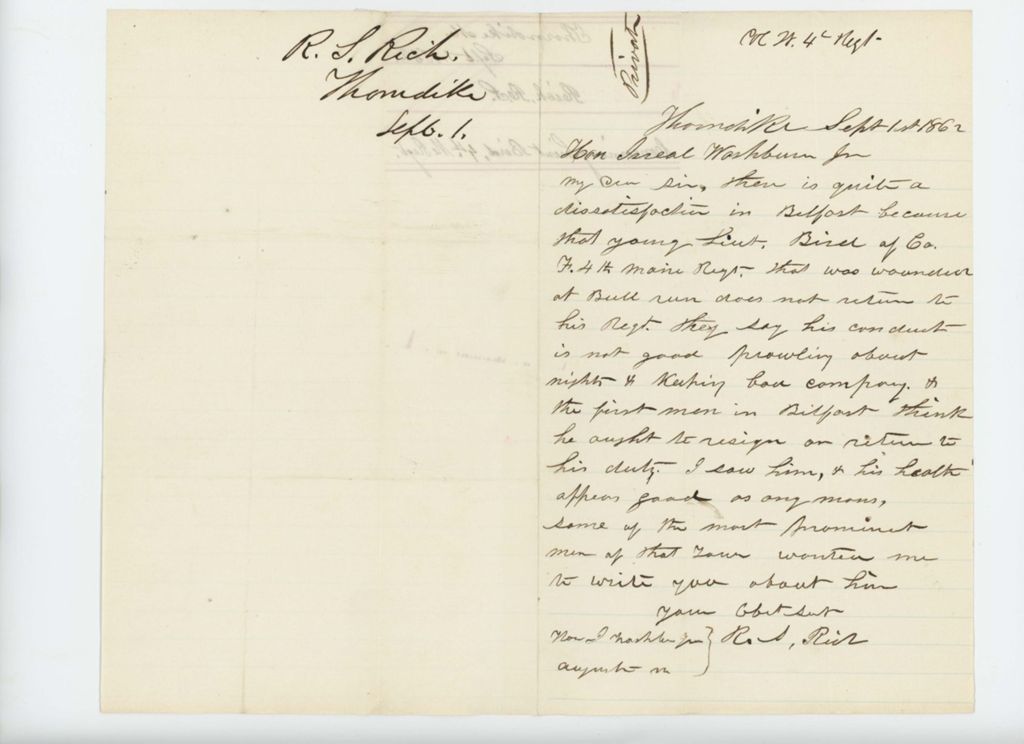 R. S. Rich.
Thorndike
Sept. 1.
Private
4th Regt
Thorndike Sept 1st 1862
Hon Isreal Washburn Jr
My dear sir, there is quite a
dissatisfaction in Belfast because
that young Lieut. Bird of Co.
F. 4th Maine Regt. that was wounded
at Bull run does not return to
his Regt. they say his conduct
is not good prowling about
nights & keeping bad company. &
the first men in Belfast think
he ought to resign or return to
his duty. I saw him, & his health
appears good as any mans,
some of the most prominent
men of that Town wanted me
to write you about him
your Obt Sert
R. S, Rich
Hon I Washburn Jr
augusta m